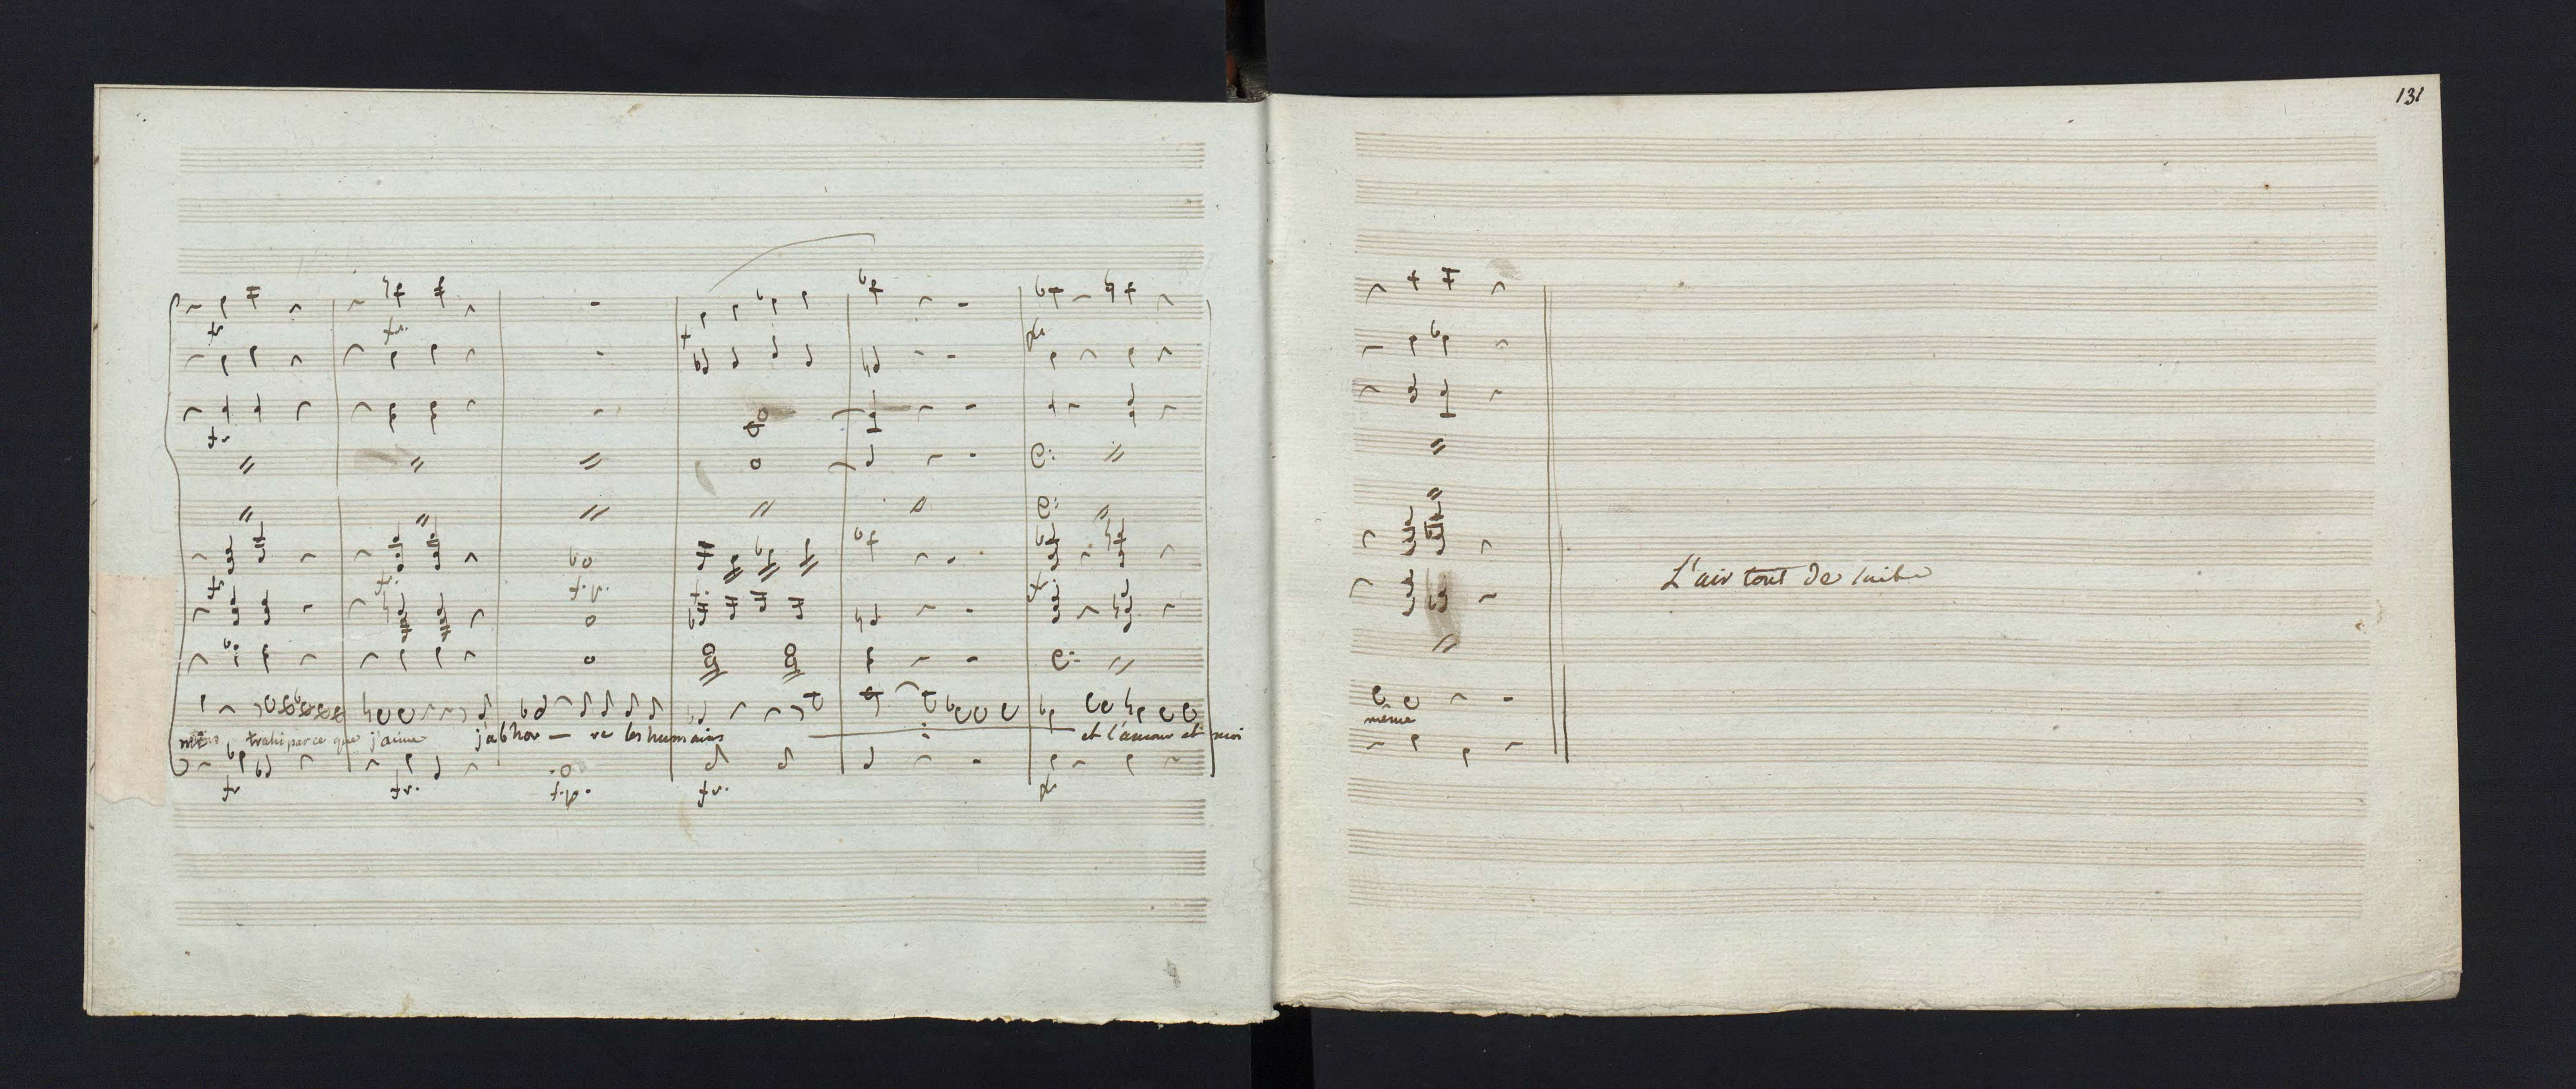 131
trahi parce que j'aime j'abhor — re les humains et l'amour et moi
même
L'air tout de suite